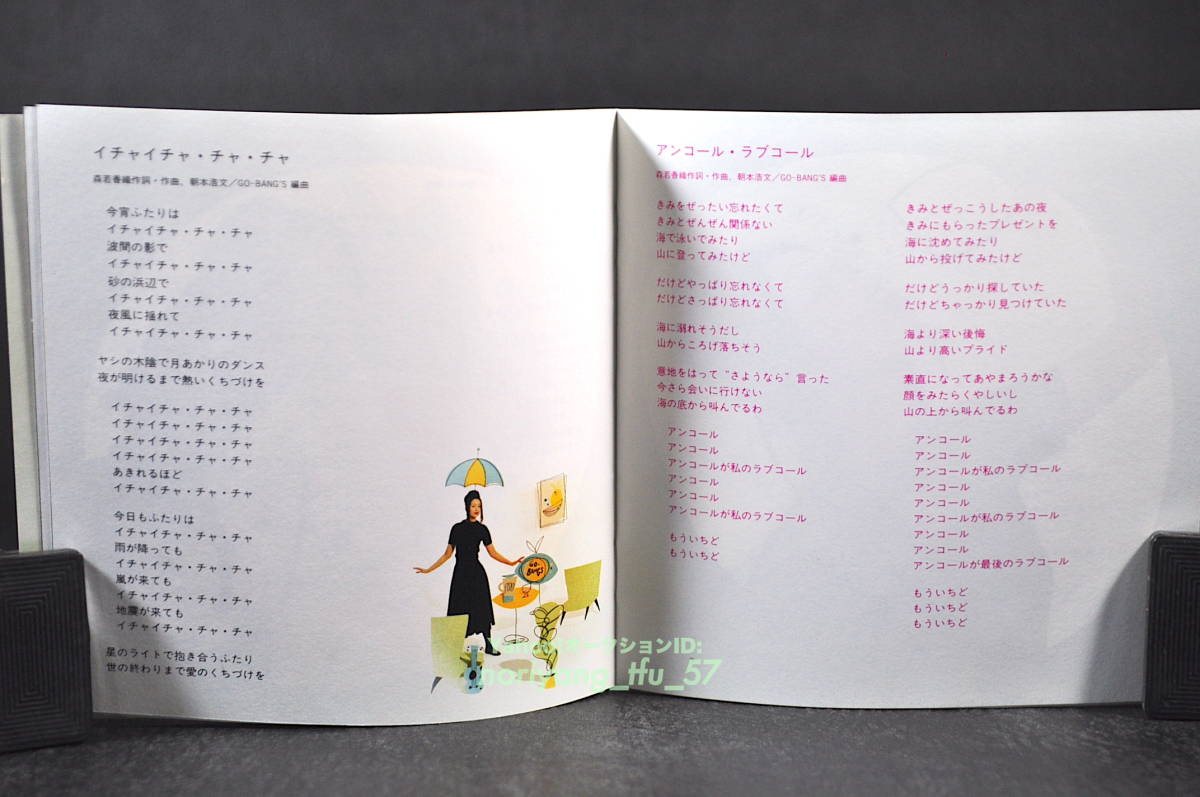 イチャイチャ・チャ・チャ
森若香織作詞・作曲、朝本浩文／GO-BANG'S 編曲
今宵ふたりは
イチャイチャ・チャ・チャ
波間の影で
イチャイチャ・チャ・チャ
砂の浜辺で
イチャイチャ・チャ・チャ
夜風に揺れて
イチャイチャ・チャ・チャ
ヤシの木陰で月あかりのダンス
夜が明けるまで熱いくちづけを
イチャイチャ・チャ・チャ
イチャイチャ・チャ・チャ
イチャイチャ・チャ・チャ
イチャイチャ・チャ・チャ
あきれるほど
イチャイチャ・チャ・チャ
今日もふたりは
イチャイチャ・チャ・チャ
雨が降っても
イチャイチャ・チャ・チャ
嵐が来ても
イチャイチャ・チャ・チャ
地震が来ても
イチャイチャ・チャ・チャ
星のライトで抱き合うふたり
世の終わりまで愛のくちづけを
GO-
BANG'S
アンコール・ラブコール
森若香織作詞・作曲、朝本浩文／GO-BANG'S 編曲
きみをぜったい忘れたくて
きみとぜんぜん関係ない
海で泳いでみたり
山に登ってみたけど
だけどやっぱり忘れなくて
だけどさっぱり忘れなくて
海に溺れそうだし
山からころげ落ちそう
意地をはって“さようなら”言った
今さら会いに行けない
海の底から叫んでるわ
アンコール
アンコール
アンコールが私のラブコール
アンコール
アンコール
アンコールが私のラブコール
もういちど
もういちど
きみとぜっこうしたあの夜
きみにもらったプレゼントを
海に沈めてみたり
山から投げてみたけど
だけどうっかり探していた
だけどちゃっかり見つけていた
海より深い後悔
山より高いプライド
素直になってあやまろうかな
顔をみたらくやしいし
山の上から叫んでるわ
アンコール
アンコール
アンコールが私のラブコール
アンコール
アンコール
アンコールが私のラブコール
アンコール
アンコール
アンコールが最後のラブコール
もういちど
もういちど
もういちど
Yahoo!オークションID:
noriyang_tfu_57